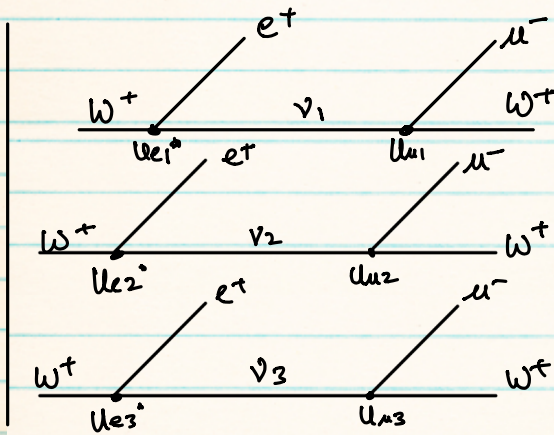 e⁺ μ⁻
W⁺ ν₁ W⁺
Ue1* Uμ1
e⁺ μ⁻
W⁺ ν₂ W⁺
Ue2* Uμ2
e⁺ μ⁻
W⁺ ν₃ W⁺
Ue3* Uμ3